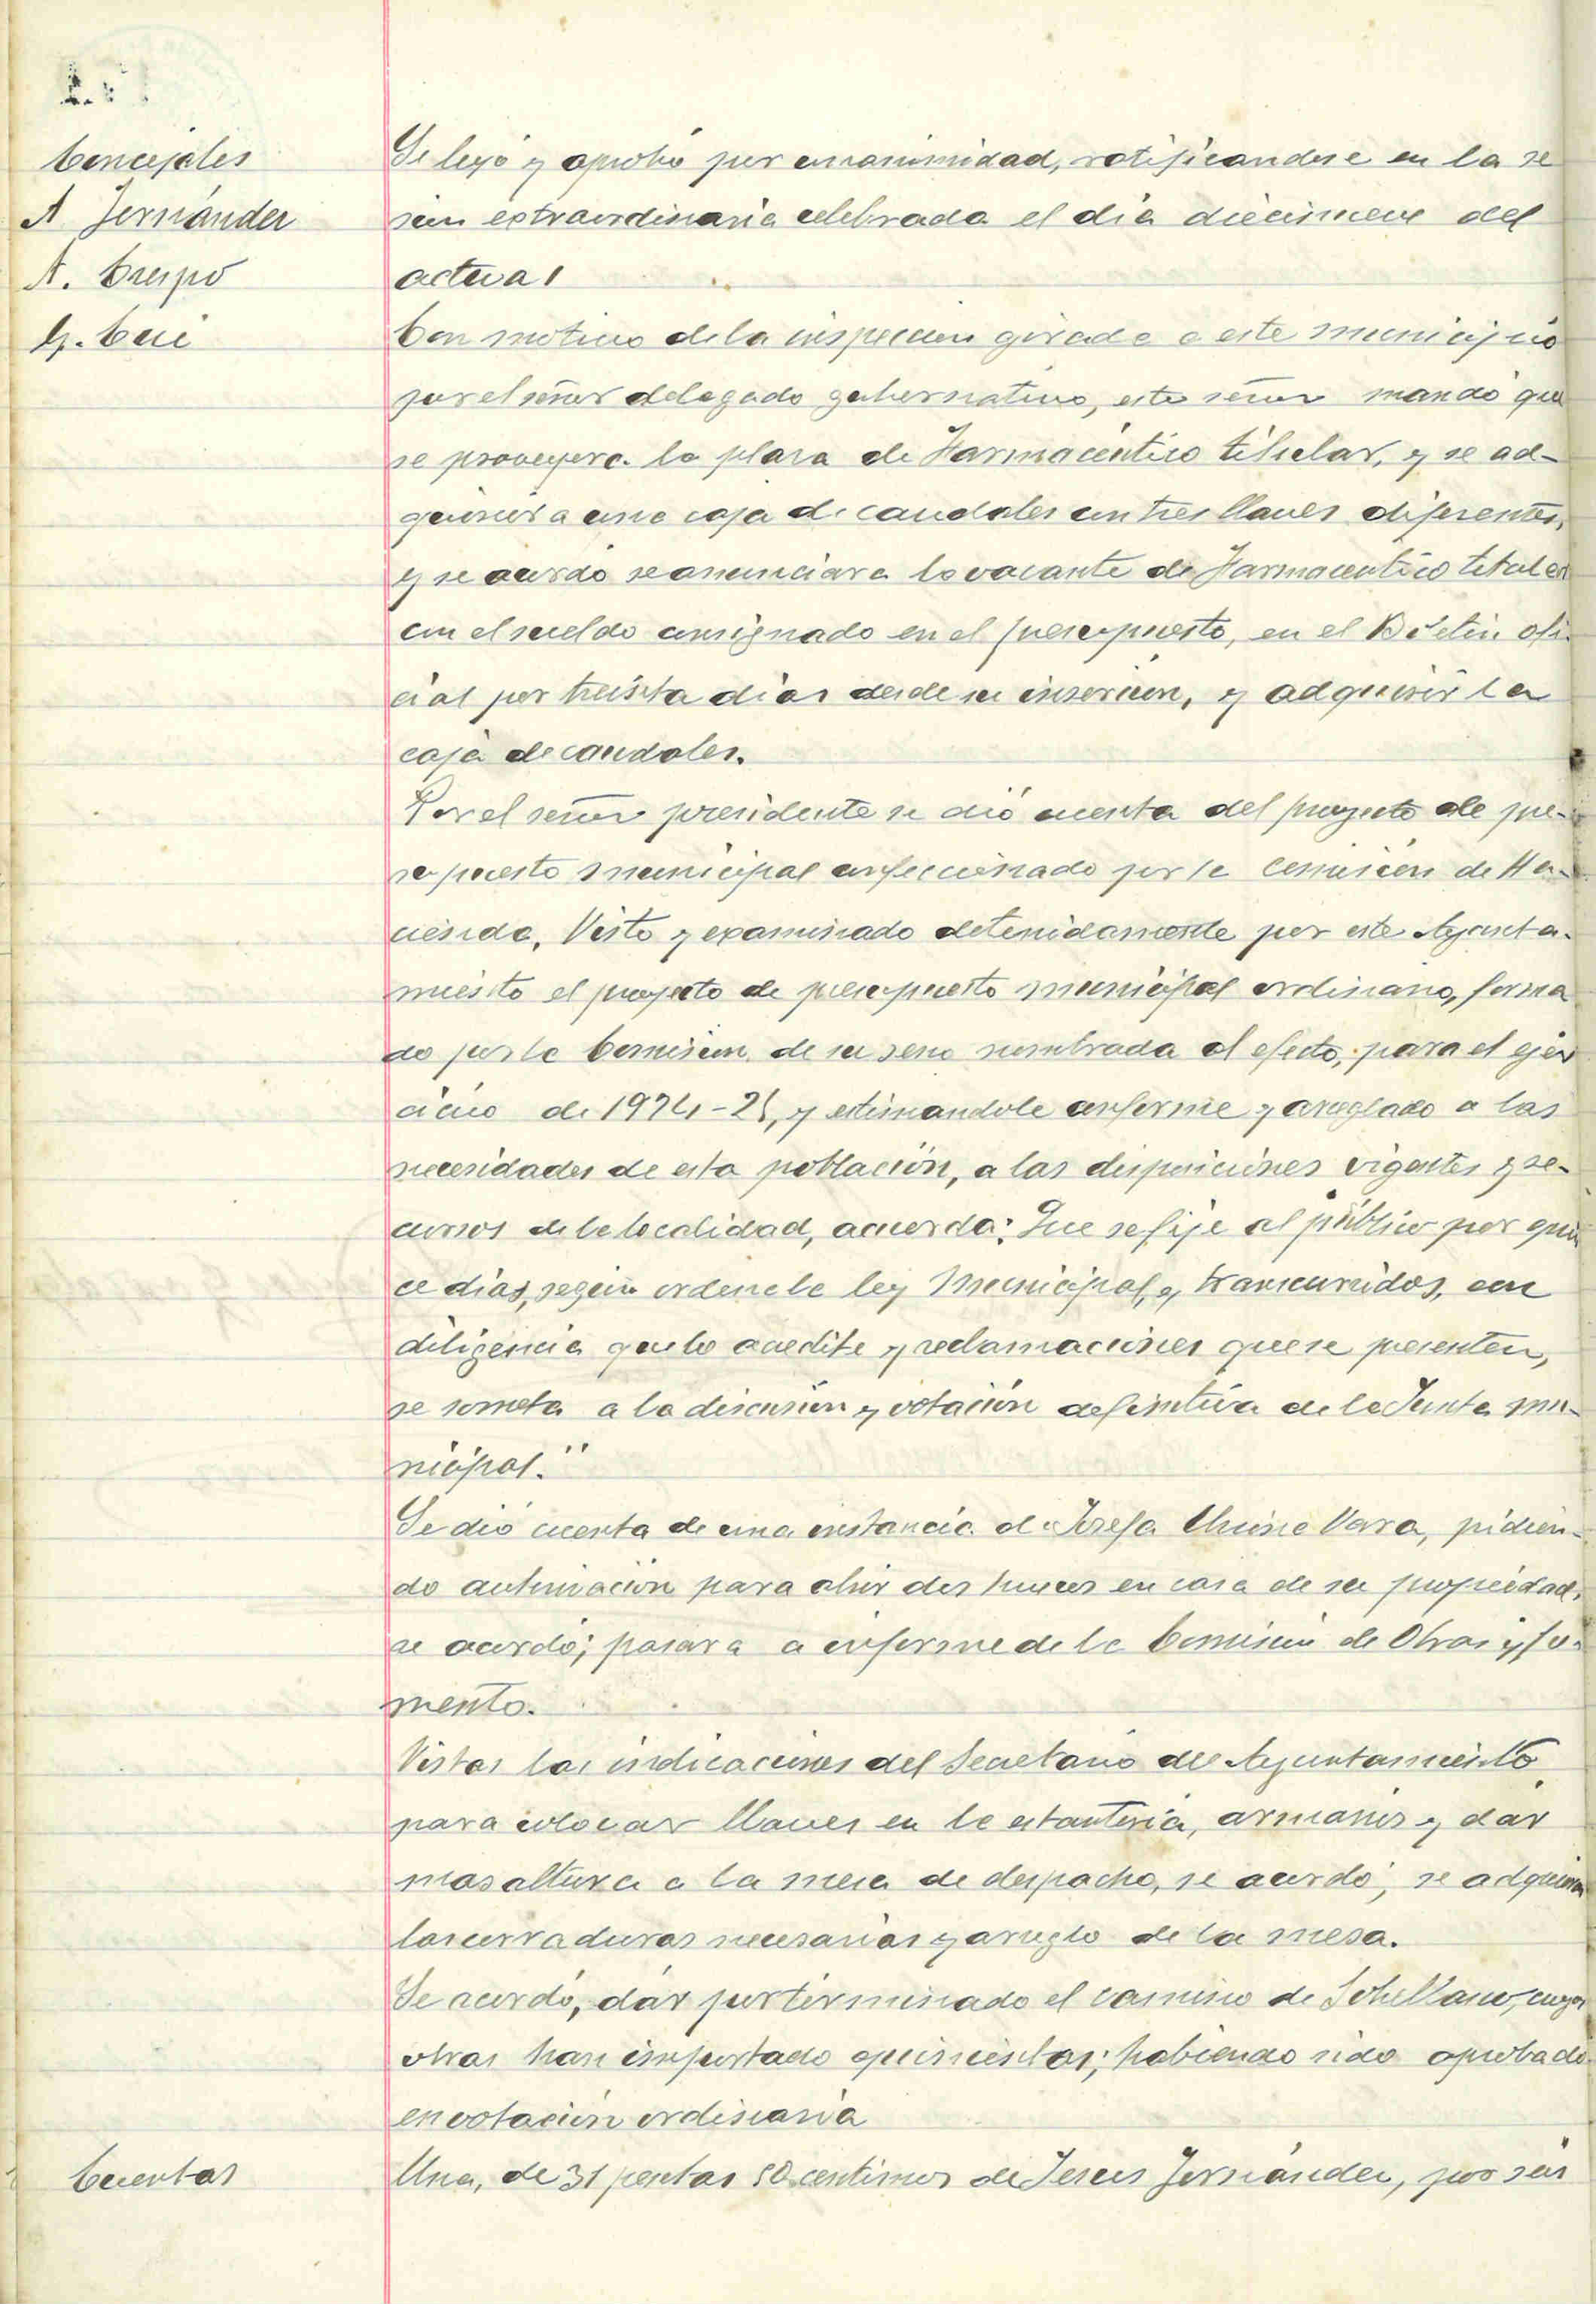 Concejales
A Fernández
A. Crespo
G.
Se leyó y aprobó por unanimidad, ratificandose en la se
sion extraordinaria celebrada el dia diecinueve del
actual
Con motivo de la inspeccion girada a este municipio
por el señor delegado gubernativo, este señor mandó que
se proveyera la plaza de Farmacéutico titular, y se ad-
quiriera una caja de caudales con tres llaves diferentes,
y se acordó se anunciara la vacante de Farmaceutico titular
con el sueldo consignado en el presupuesto, en el Boletin ofi-
cial por treinta dias desde su inserción, y adquirir la
caja de caudales.
Por el señor presidente se dió cuenta del proyecto de pre-
supuesto municipal confeccionado por la Comisión de Ha-
cienda. Visto y examinado detenidamente por este Ayunta-
miento el proyecto de presupuesto municipal ordinario, forma
do por la Comision de su seno nombrada al efecto, para el ejer
cicio de 1924-25, y estimandole conforme y arreglado a las
necesidades de esta población, a las disposiciones vigentes y re-
cursos de la localidad, acuerda: Que se fije al público por quin
ce dias, segun ordena la ley Municipal, y transcurridos, con
diligencia que lo acredite y reclamaciones que se presenten,
se someta a la discusion y votación definitiva de la Junta mu-
nicipal."
Se dió cuenta de una instancia de Josefa Vara, pidien-
do autorización para abrir dos huecos en casa de su propiedad,
se acordó; pasara a informe de la Comision de Obras y fo-
mento.
Vistas las indicaciones del Secretario del Ayuntamiento
para colocar llaves en la estantería, armarios y dar
mas altura a la mesa de despacho, se acordó, se adquieran
las cerraduras necesarias y arreglo de la mesa.
Se acordó, dár por terminado el camino de cuyas
obras han importado quinientas; habiendo sido aprobado
en votación ordinaria
Cuentas
Una, de 31 pesetas 50 centimos de Jesus Fernández, por seis